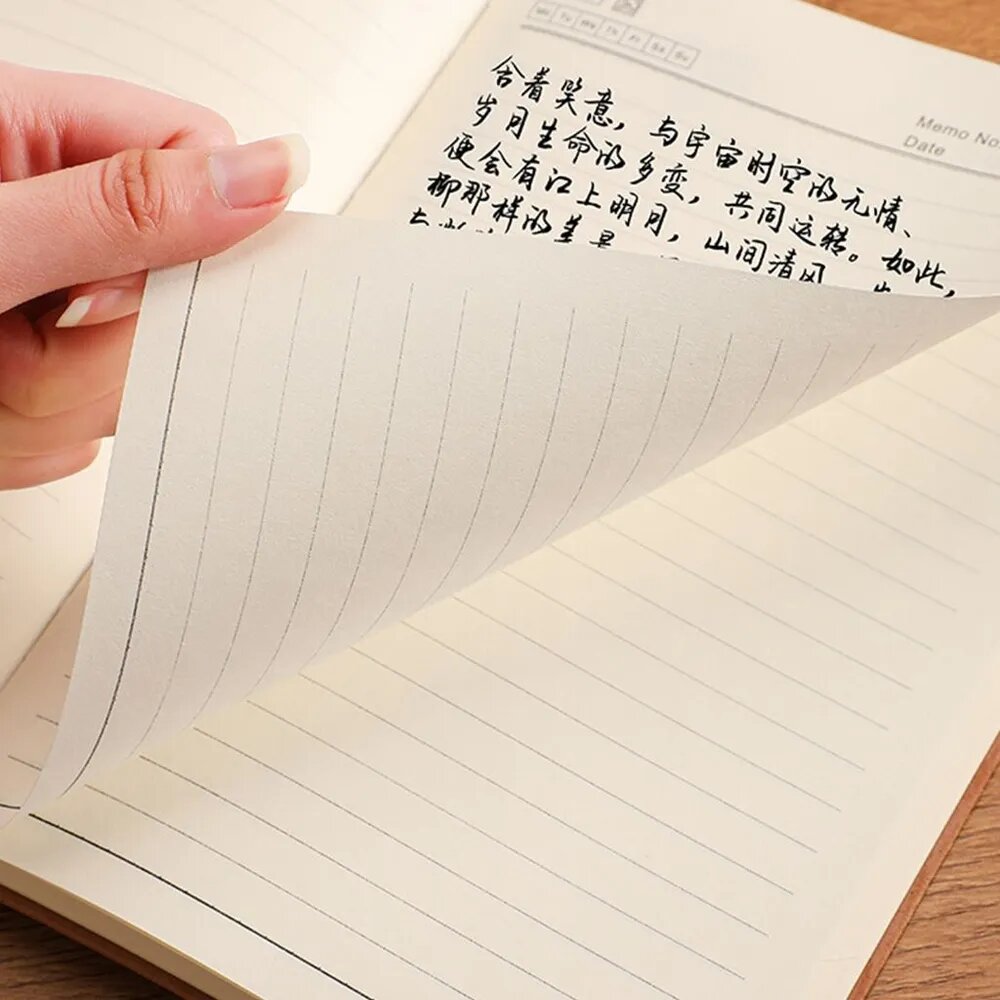 Mo Tu We Th Fr Sa Su
Memo No.
Date
含着笑意，与宇宙时空的无情、
岁月生命的多变，共同运转。如此，
便会有江上明月，山间清风
柳那样的差